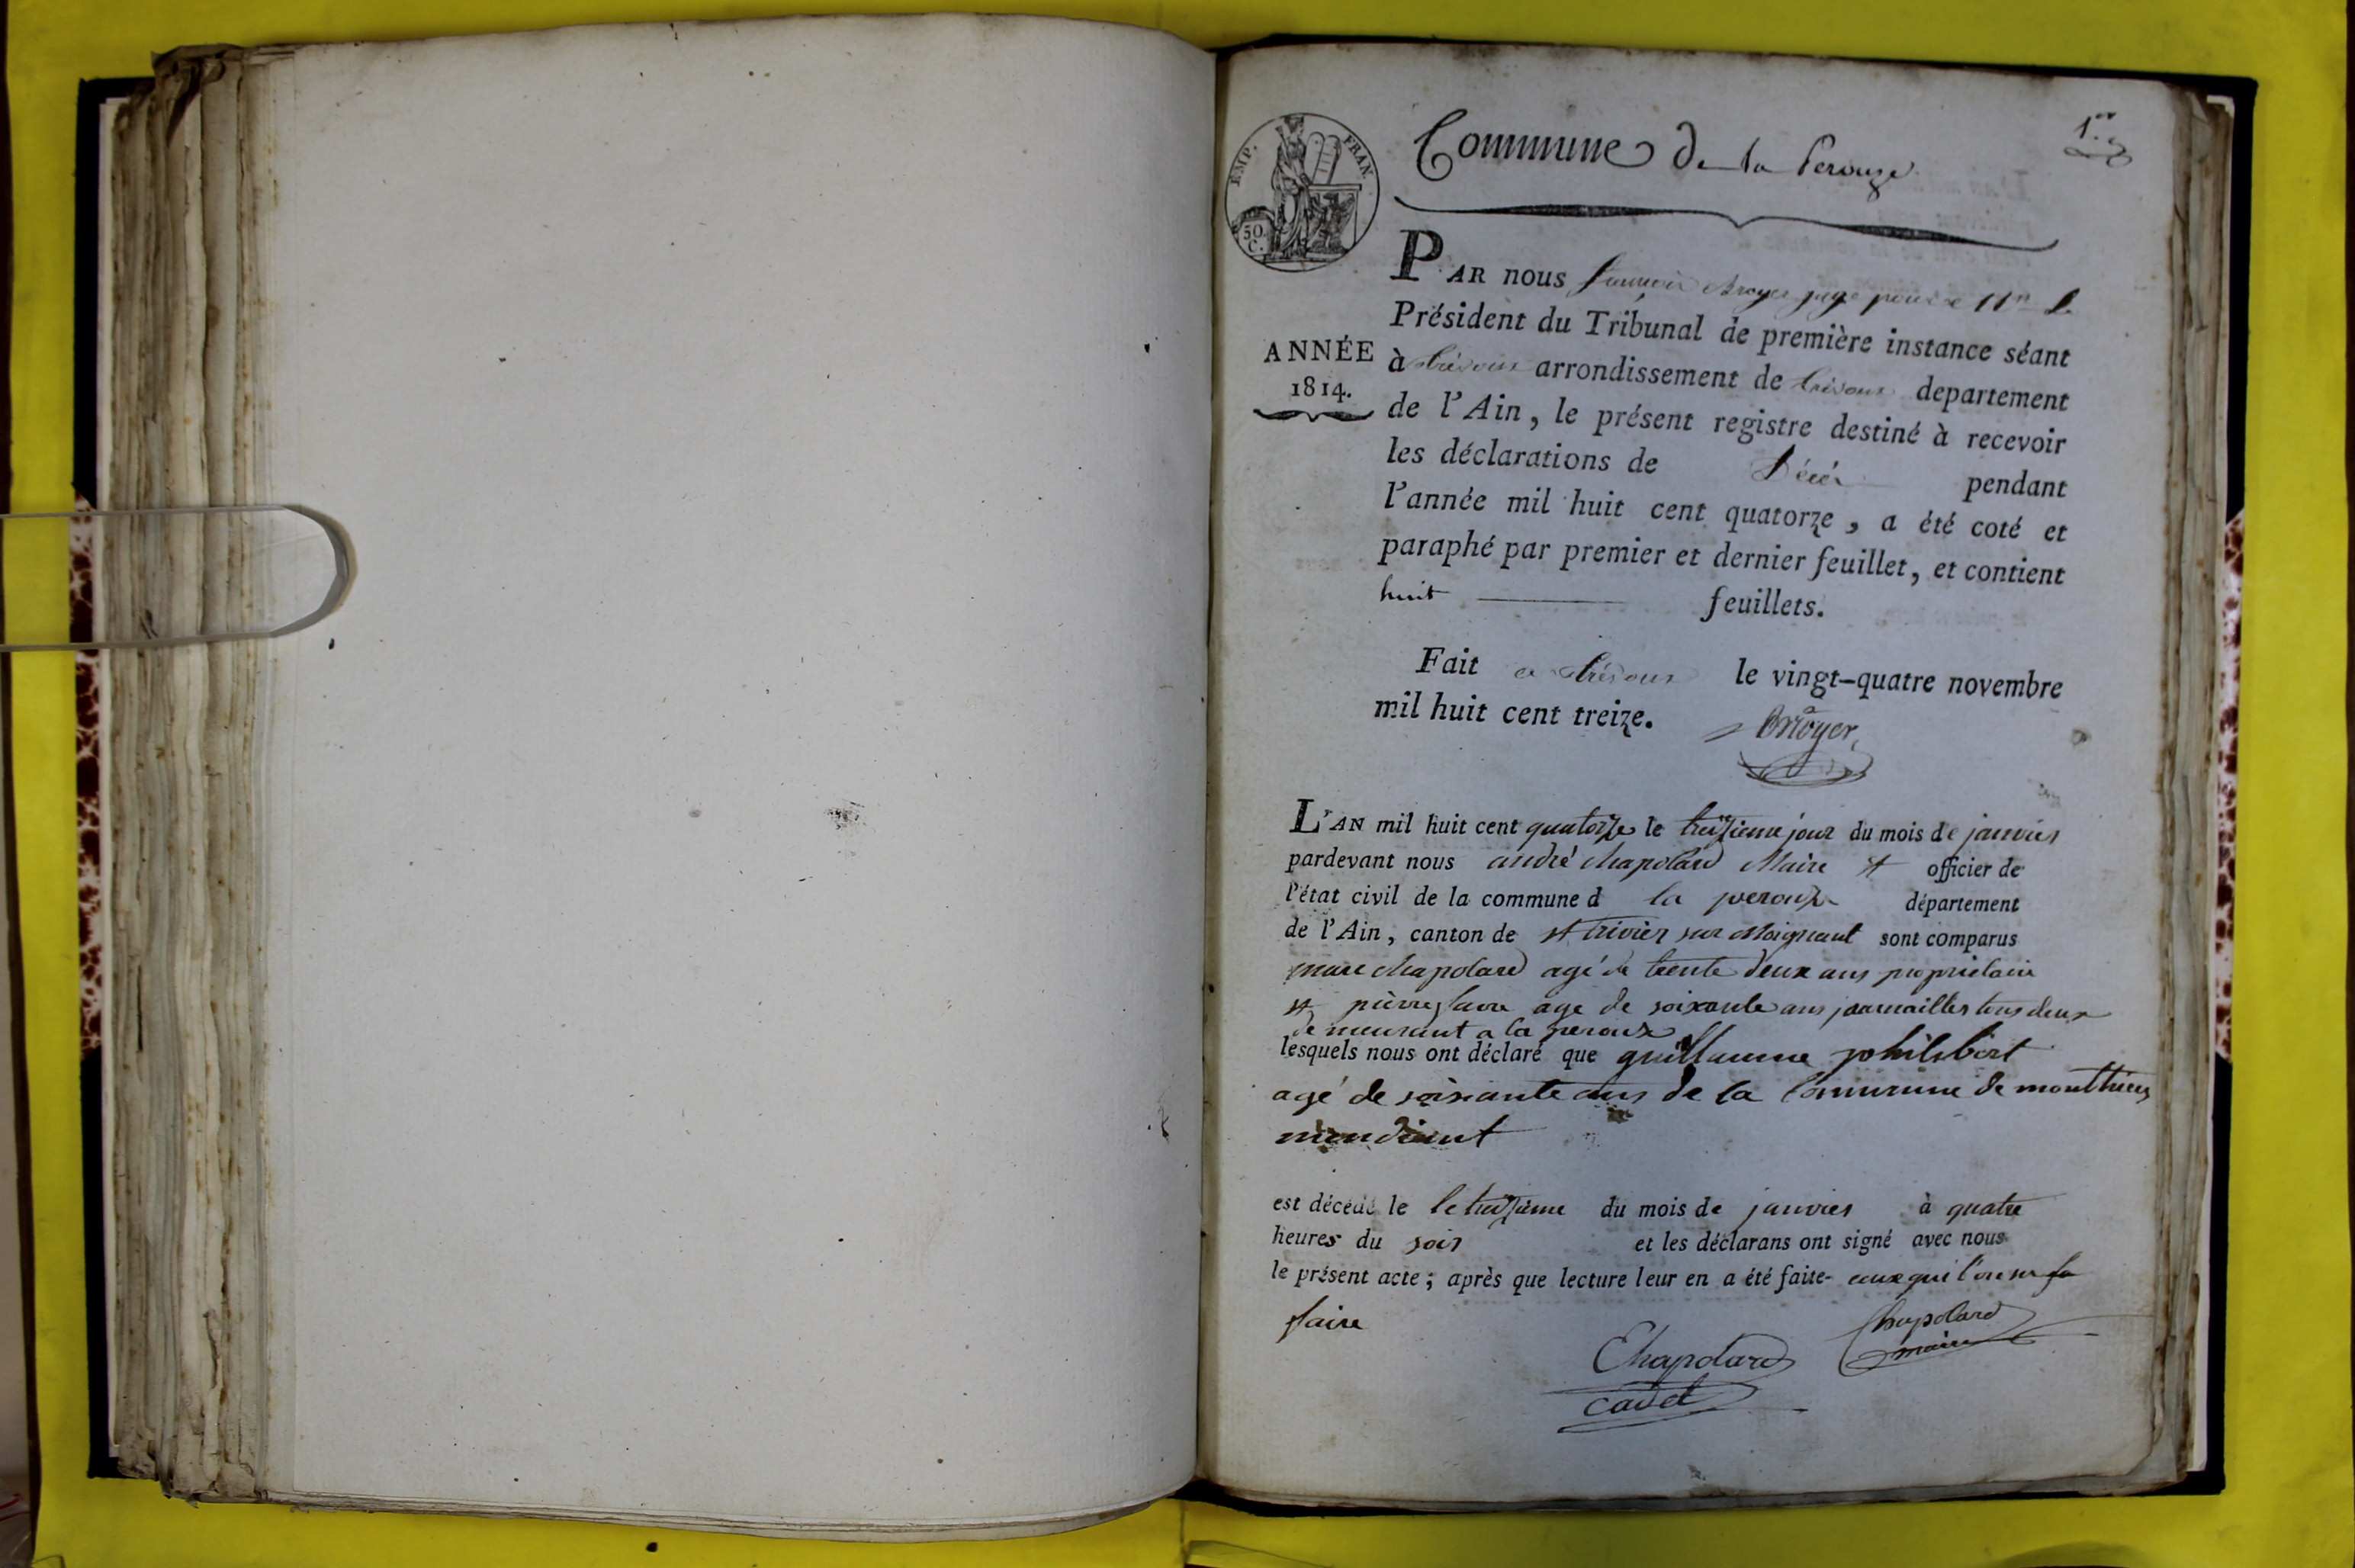 1er
Commune de la Perouze
EMP. FRAN.
50 C.
PAR nous françois Broyer juge pour Mr le
Président du Tribunal de première instance séant
ANNÉE
1814.
à Trévoux arrondissement de Trévoux departement
de l'Ain, le présent registre destiné à recevoir
les déclarations de Décès pendant
l'année mil huit cent quatorze, a été coté et
paraphé par premier et dernier feuillet, et contient
huit feuillets.
Fait a Trévoux le vingt-quatre novembre
mil huit cent treize. Broyer
L'AN mil huit cent quatorze le treizieme jour du mois de janvier
pardevant nous andré chapolard Maire et officier de
l'état civil de la commune d la perouze département
de l'Ain, canton de st trivier sur Moignant sont comparus
marc chapolard agé de trente deux ans proprietaire
et pierre favre age de soixante ans journaillier tous deux
demeurant a la perouze
lesquels nous ont déclaré que guillaume philibert
agé de soixante ans de la Commune de monthieux
mendiant
est décédé le le treizieme du mois de janvier à quatre
heures du soir et les déclarans ont signé avec nous
le présent acte; après que lecture leur en a été faite- ceux qui l'on su fa
faire
Chapolard
maire
Chapolard
cadet